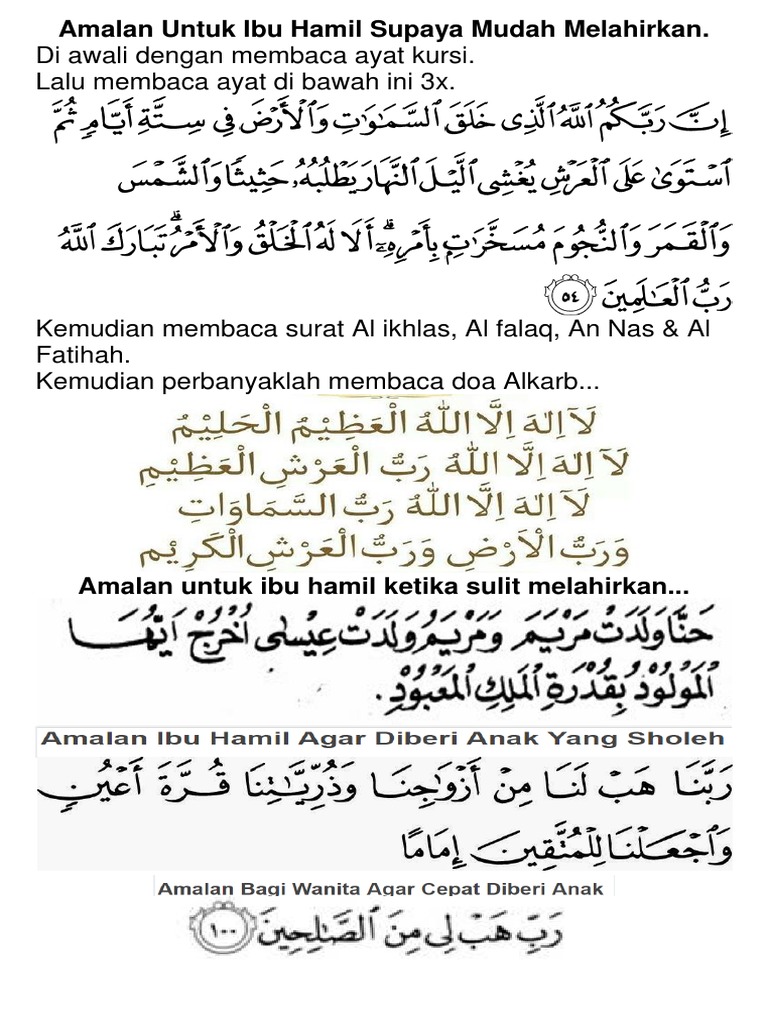 Amalan Untuk Ibu Hamil Supaya Mudah Melahirkan.
Di awali dengan membaca ayat kursi.
Lalu membaca ayat di bawah ini 3x.
إِنَّ رَبَّكُمُ ٱللَّهُ ٱلَّذِى خَلَقَ ٱلسَّمَـٰوَٰتِ وَٱلْأَرْضَ فِى سِتَّةِ أَيَّامٍ ثُمَّ
ٱسْتَوَىٰ عَلَى ٱلْعَرْشِ يُغْشِى ٱلَّيْلَ ٱلنَّهَارَ يَطْلُبُهُۥ حَثِيثًا وَٱلشَّمْسَ
وَٱلْقَمَرَ وَٱلنُّجُومَ مُسَخَّرَٰتٍۭ بِأَمْرِهِۦٓ ۗ أَلَا لَهُ ٱلْخَلْقُ وَٱلْأَمْرُ ۗ تَبَارَكَ ٱللَّهُ
رَبُّ ٱلْعَـٰلَمِينَ ٥٤
Kemudian membaca surat Al ikhlas, Al falaq, An Nas & Al
Fatihah.
Kemudian perbanyaklah membaca doa Alkarb...
لَآ اِلٰهَ اِلَّا اللّٰهُ الْعَظِيْمُ الْحَلِيْمُ
لَآ اِلٰهَ اِلَّا اللّٰهُ رَبُّ الْعَرْشِ الْعَظِيْمِ
لَآ اِلٰهَ اِلَّا اللّٰهُ رَبُّ السَّمَاوَاتِ
وَرَبُّ الْاَرْضِ وَرَبُّ الْعَرْشِ الْكَرِيْمِ
Amalan untuk ibu hamil ketika sulit melahirkan...
حَنَّا وَلَدَتْ مَرْيَمَ وَمَرْيَمُ وَلَدَتْ عِيْسٰى اُخْرُجْ اَيُّهَا
الْمَوْلُوْدُ بِقُدْرَةِ الْمَلِكِ الْمَعْبُوْدِ.
Amalan Ibu Hamil Agar Diberi Anak Yang Sholeh
رَبَّنَا هَبْ لَنَا مِنْ أَزْوَٰجِنَا وَذُرِّيَّـٰتِنَا قُرَّةَ أَعْيُنٍ
وَٱجْعَلْنَا لِلْمُتَّقِينَ إِمَامًا
Amalan Bagi Wanita Agar Cepat Diberi Anak
رَبِّ هَبْ لِى مِنَ ٱلصَّـٰلِحِينَ ١٠٠